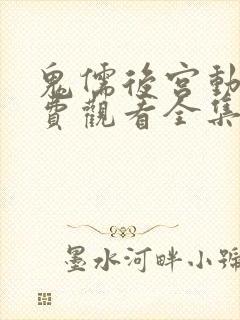 鬼儒後宮動
費觀看全集
墨水河畔小號